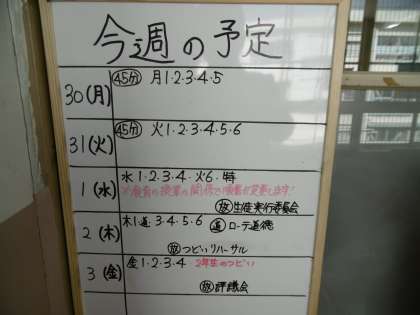 今週の予定
30(月) 45分 月1・2・3・4・5
31(火) 45分 火1・2・3・4・5・6
1(水) 水1・2・3・4・火6・特
※食育の授業の関係で順番が変更も注意!
放 生徒実行委員会
2(木) 木1・道・3・4・5・6 道 ローテ道徳
放 つどいリハーサル
3(金) 金1・2・3・4 2年生のつどい
放 評議会